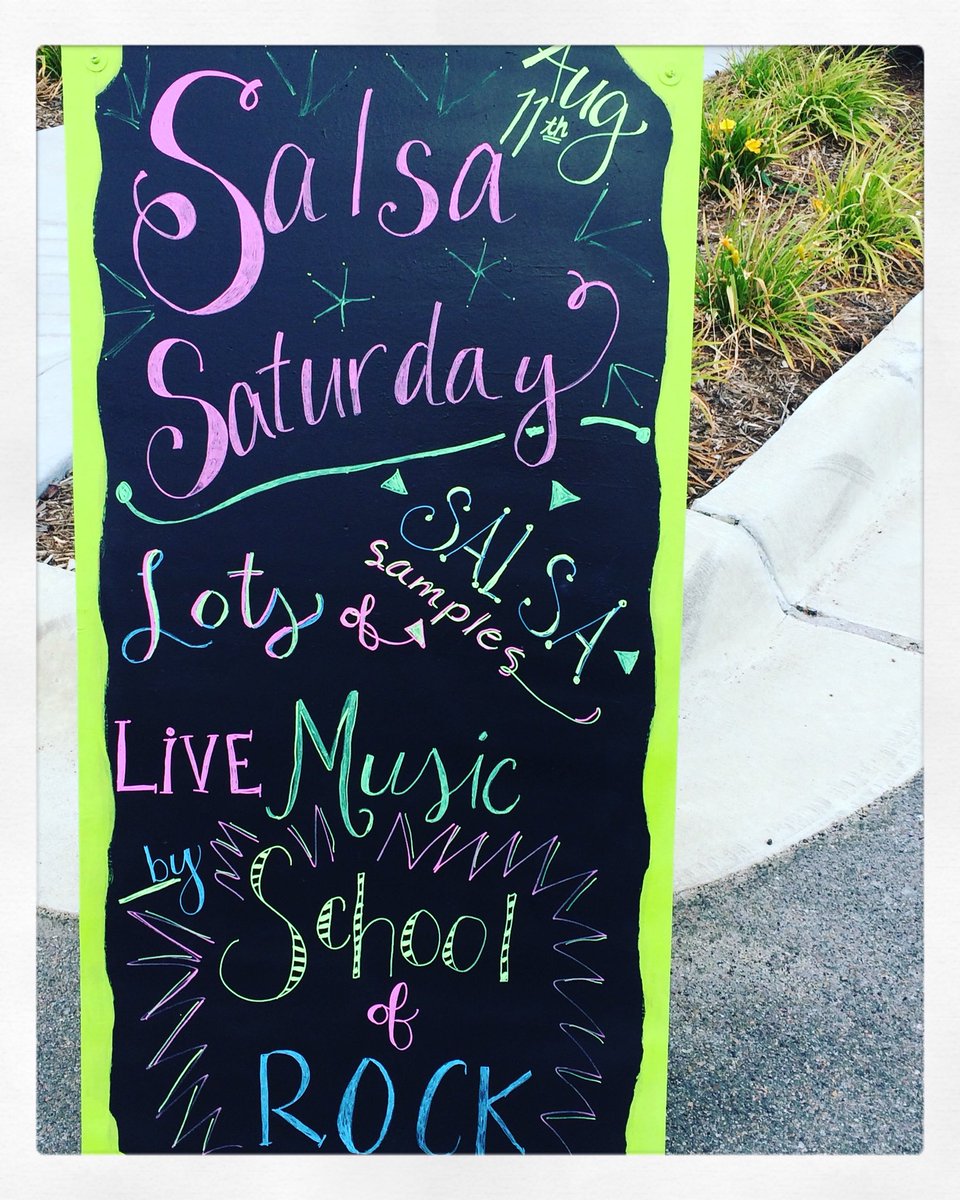 Aug
11th
Salsa
Saturday
Lots of SALSA
samples
LiVE Music
by School
of
ROCK